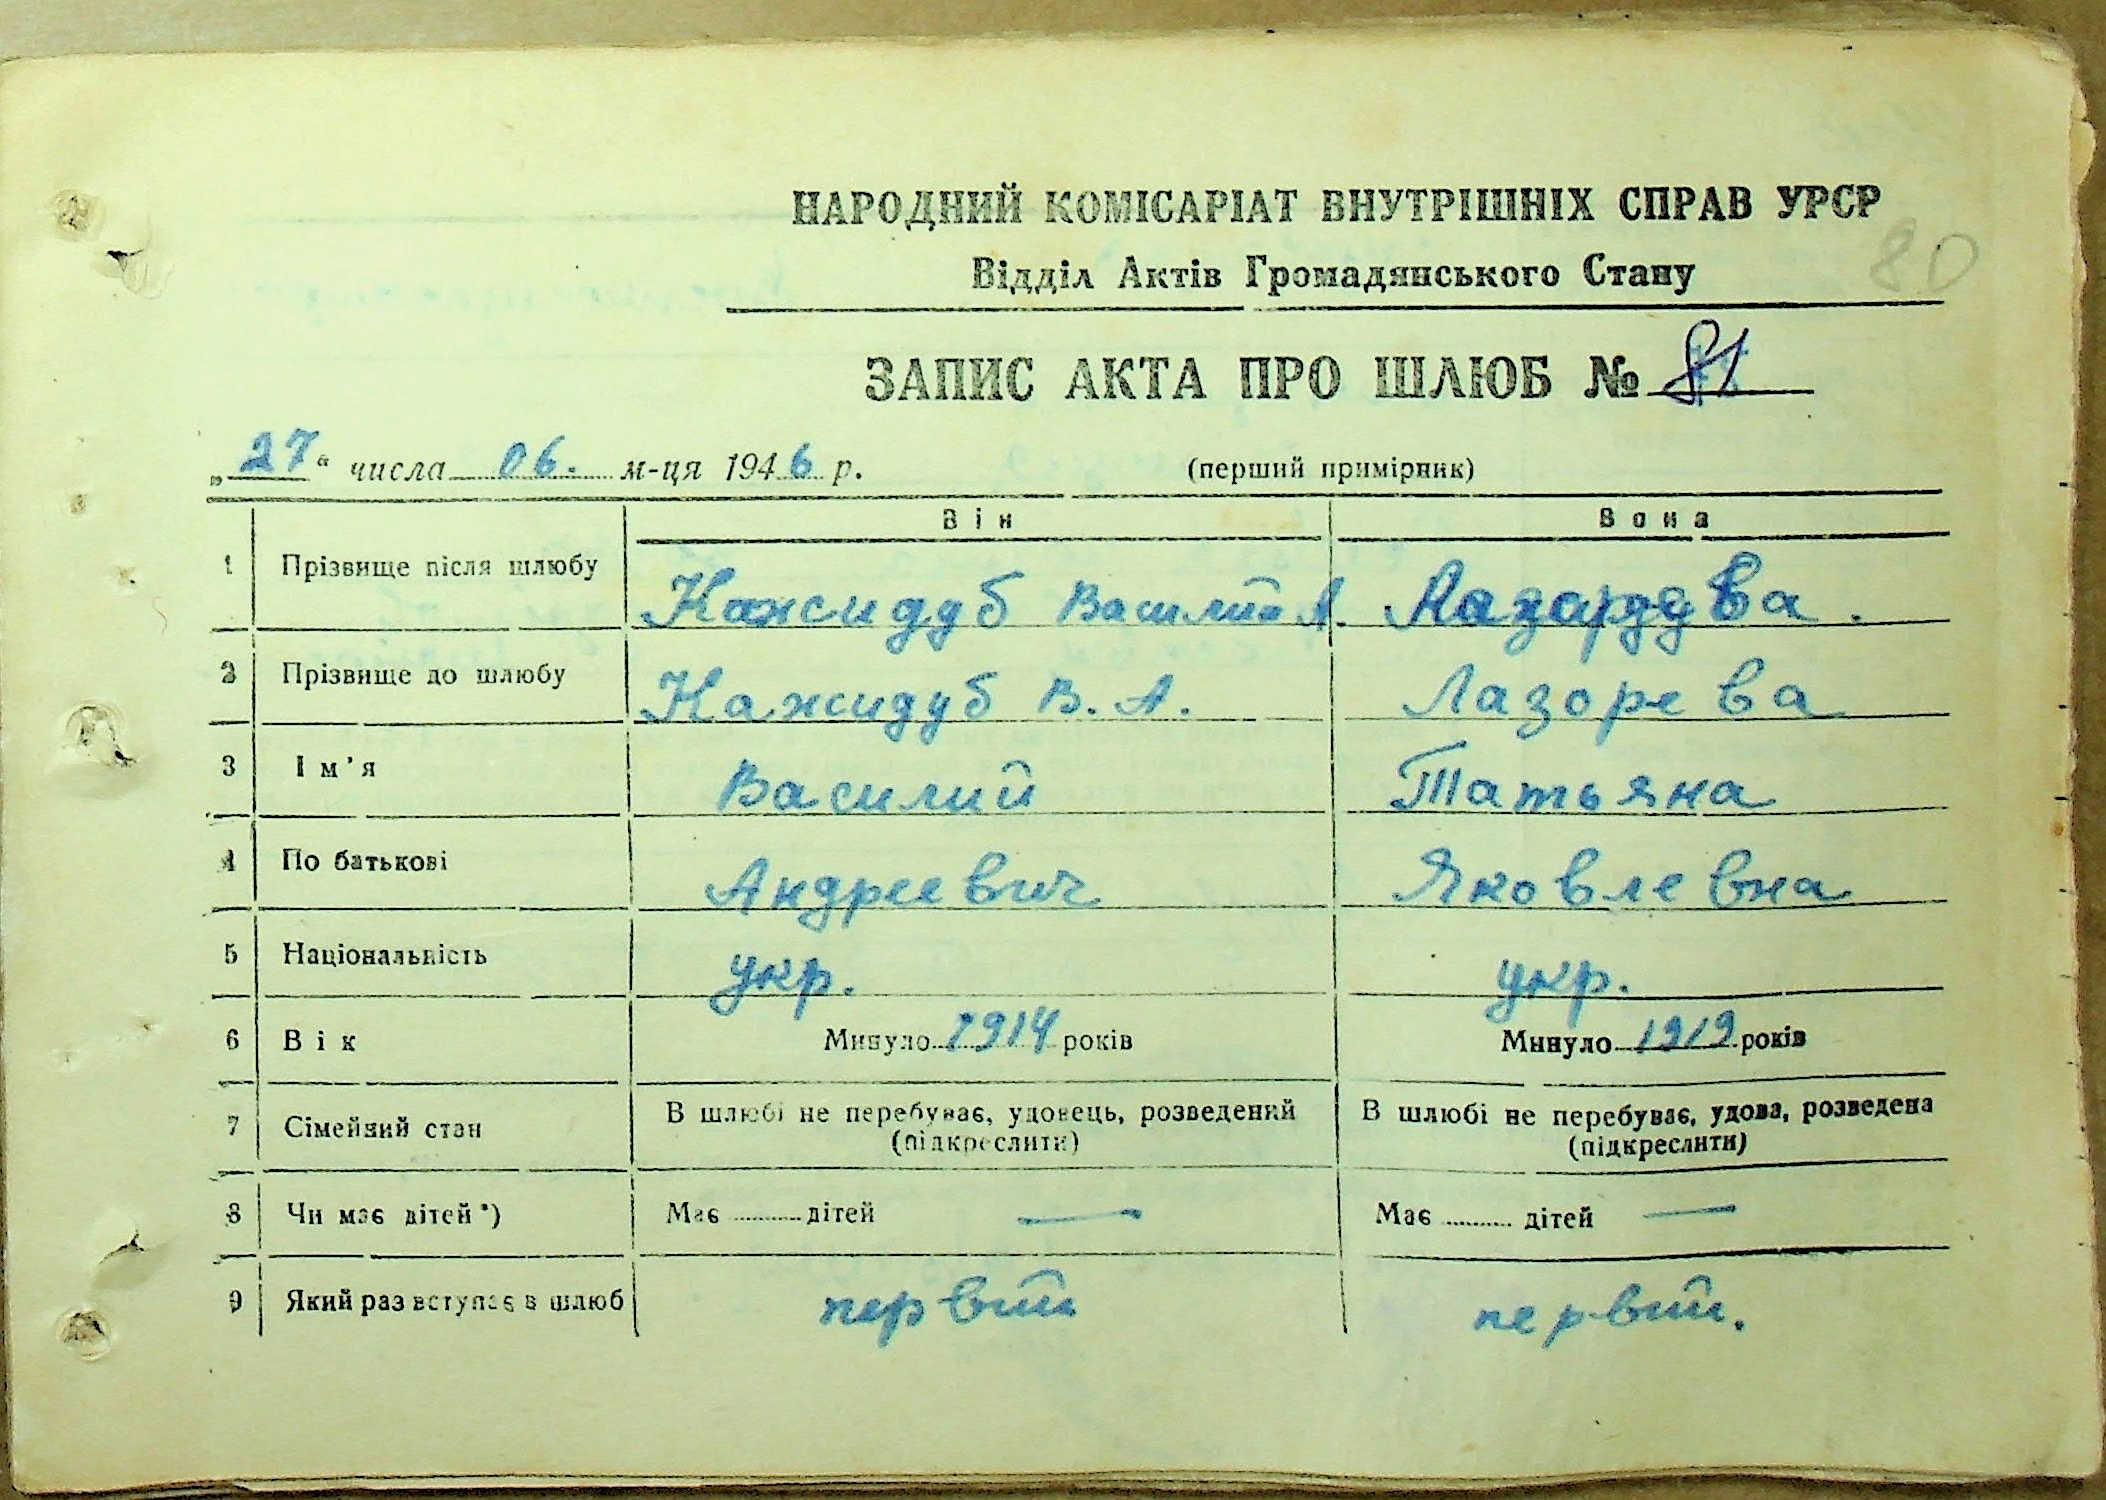 НАРОДНИЙ КОМІСАРІАТ ВНУТРІШНІХ СПРАВ УРСР
80
Відділ Актів Громадянського Стану
ЗАПИС АКТА ПРО ШЛЮБ № 81
„27“ числа 06. м-ця 1946 р. (перший примірник)
Він Вона
1 Прізвище після шлюбу Кажидуб Василий А.
2 Прізвище до шлюбу Кажидуб В. А. Лазорева
3 Ім’я Василий Татьяна
4 По батькові Андреевич Яковлевна
5 Національність укр. укр.
6 Вік Минуло 1914 років Минуло 1919 років
7 Сімейний стан В шлюбі не перебуває, удовець, розведений В шлюбі не перебуває, удова, розведена
(підкреслити) (підкреслити)
8 Чи має дітей*) Має ........... дітей — Має ........... дітей —
9 Який раз вступає в шлюб первий первий.